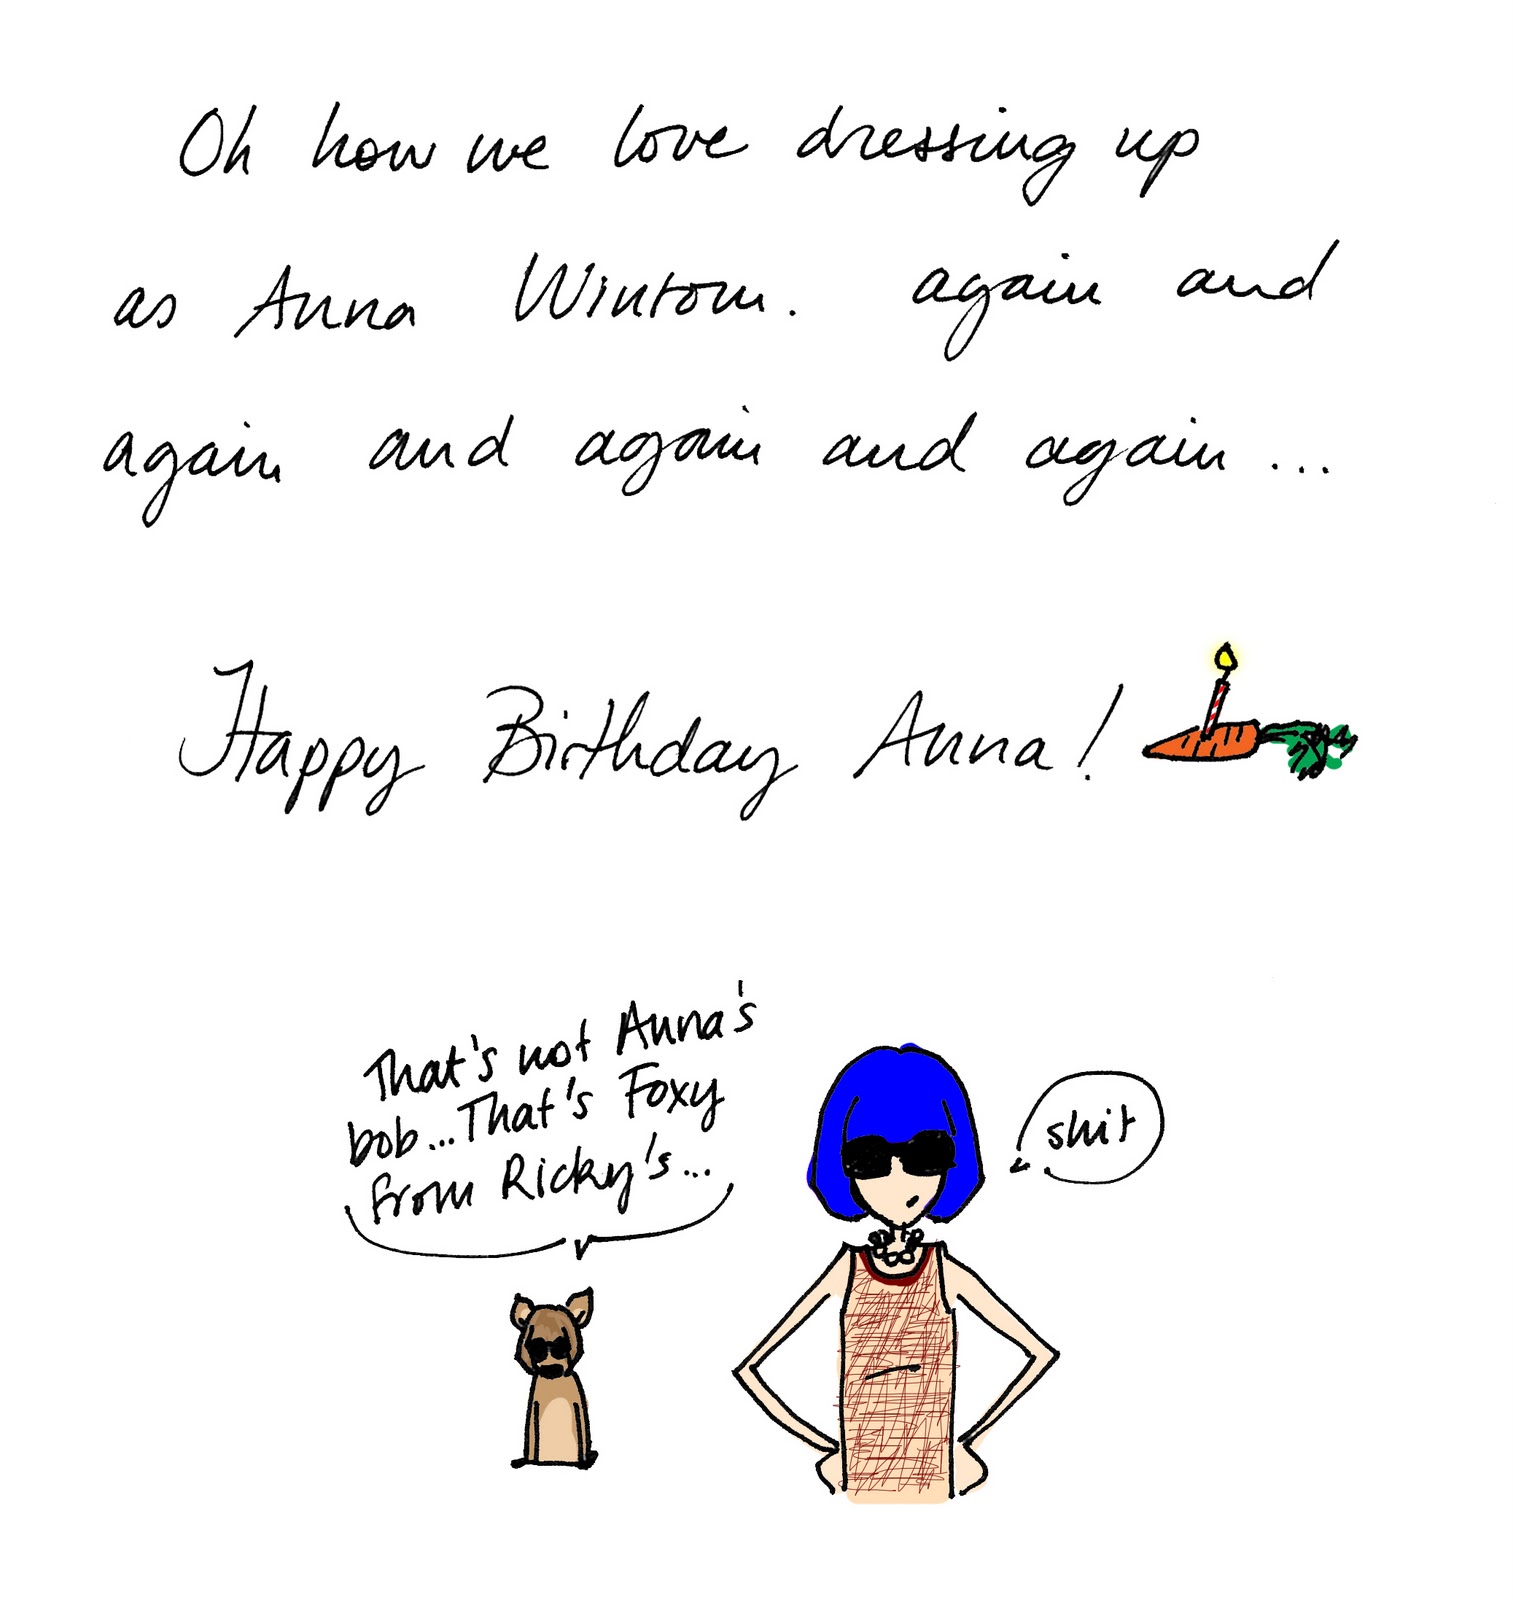 Oh how we love dressing up
as Anna Wintour. again and
again and again and again ...
Happy Birthday Anna!
That's not Anna's
bob...That's Foxy
from Ricky's...
shit